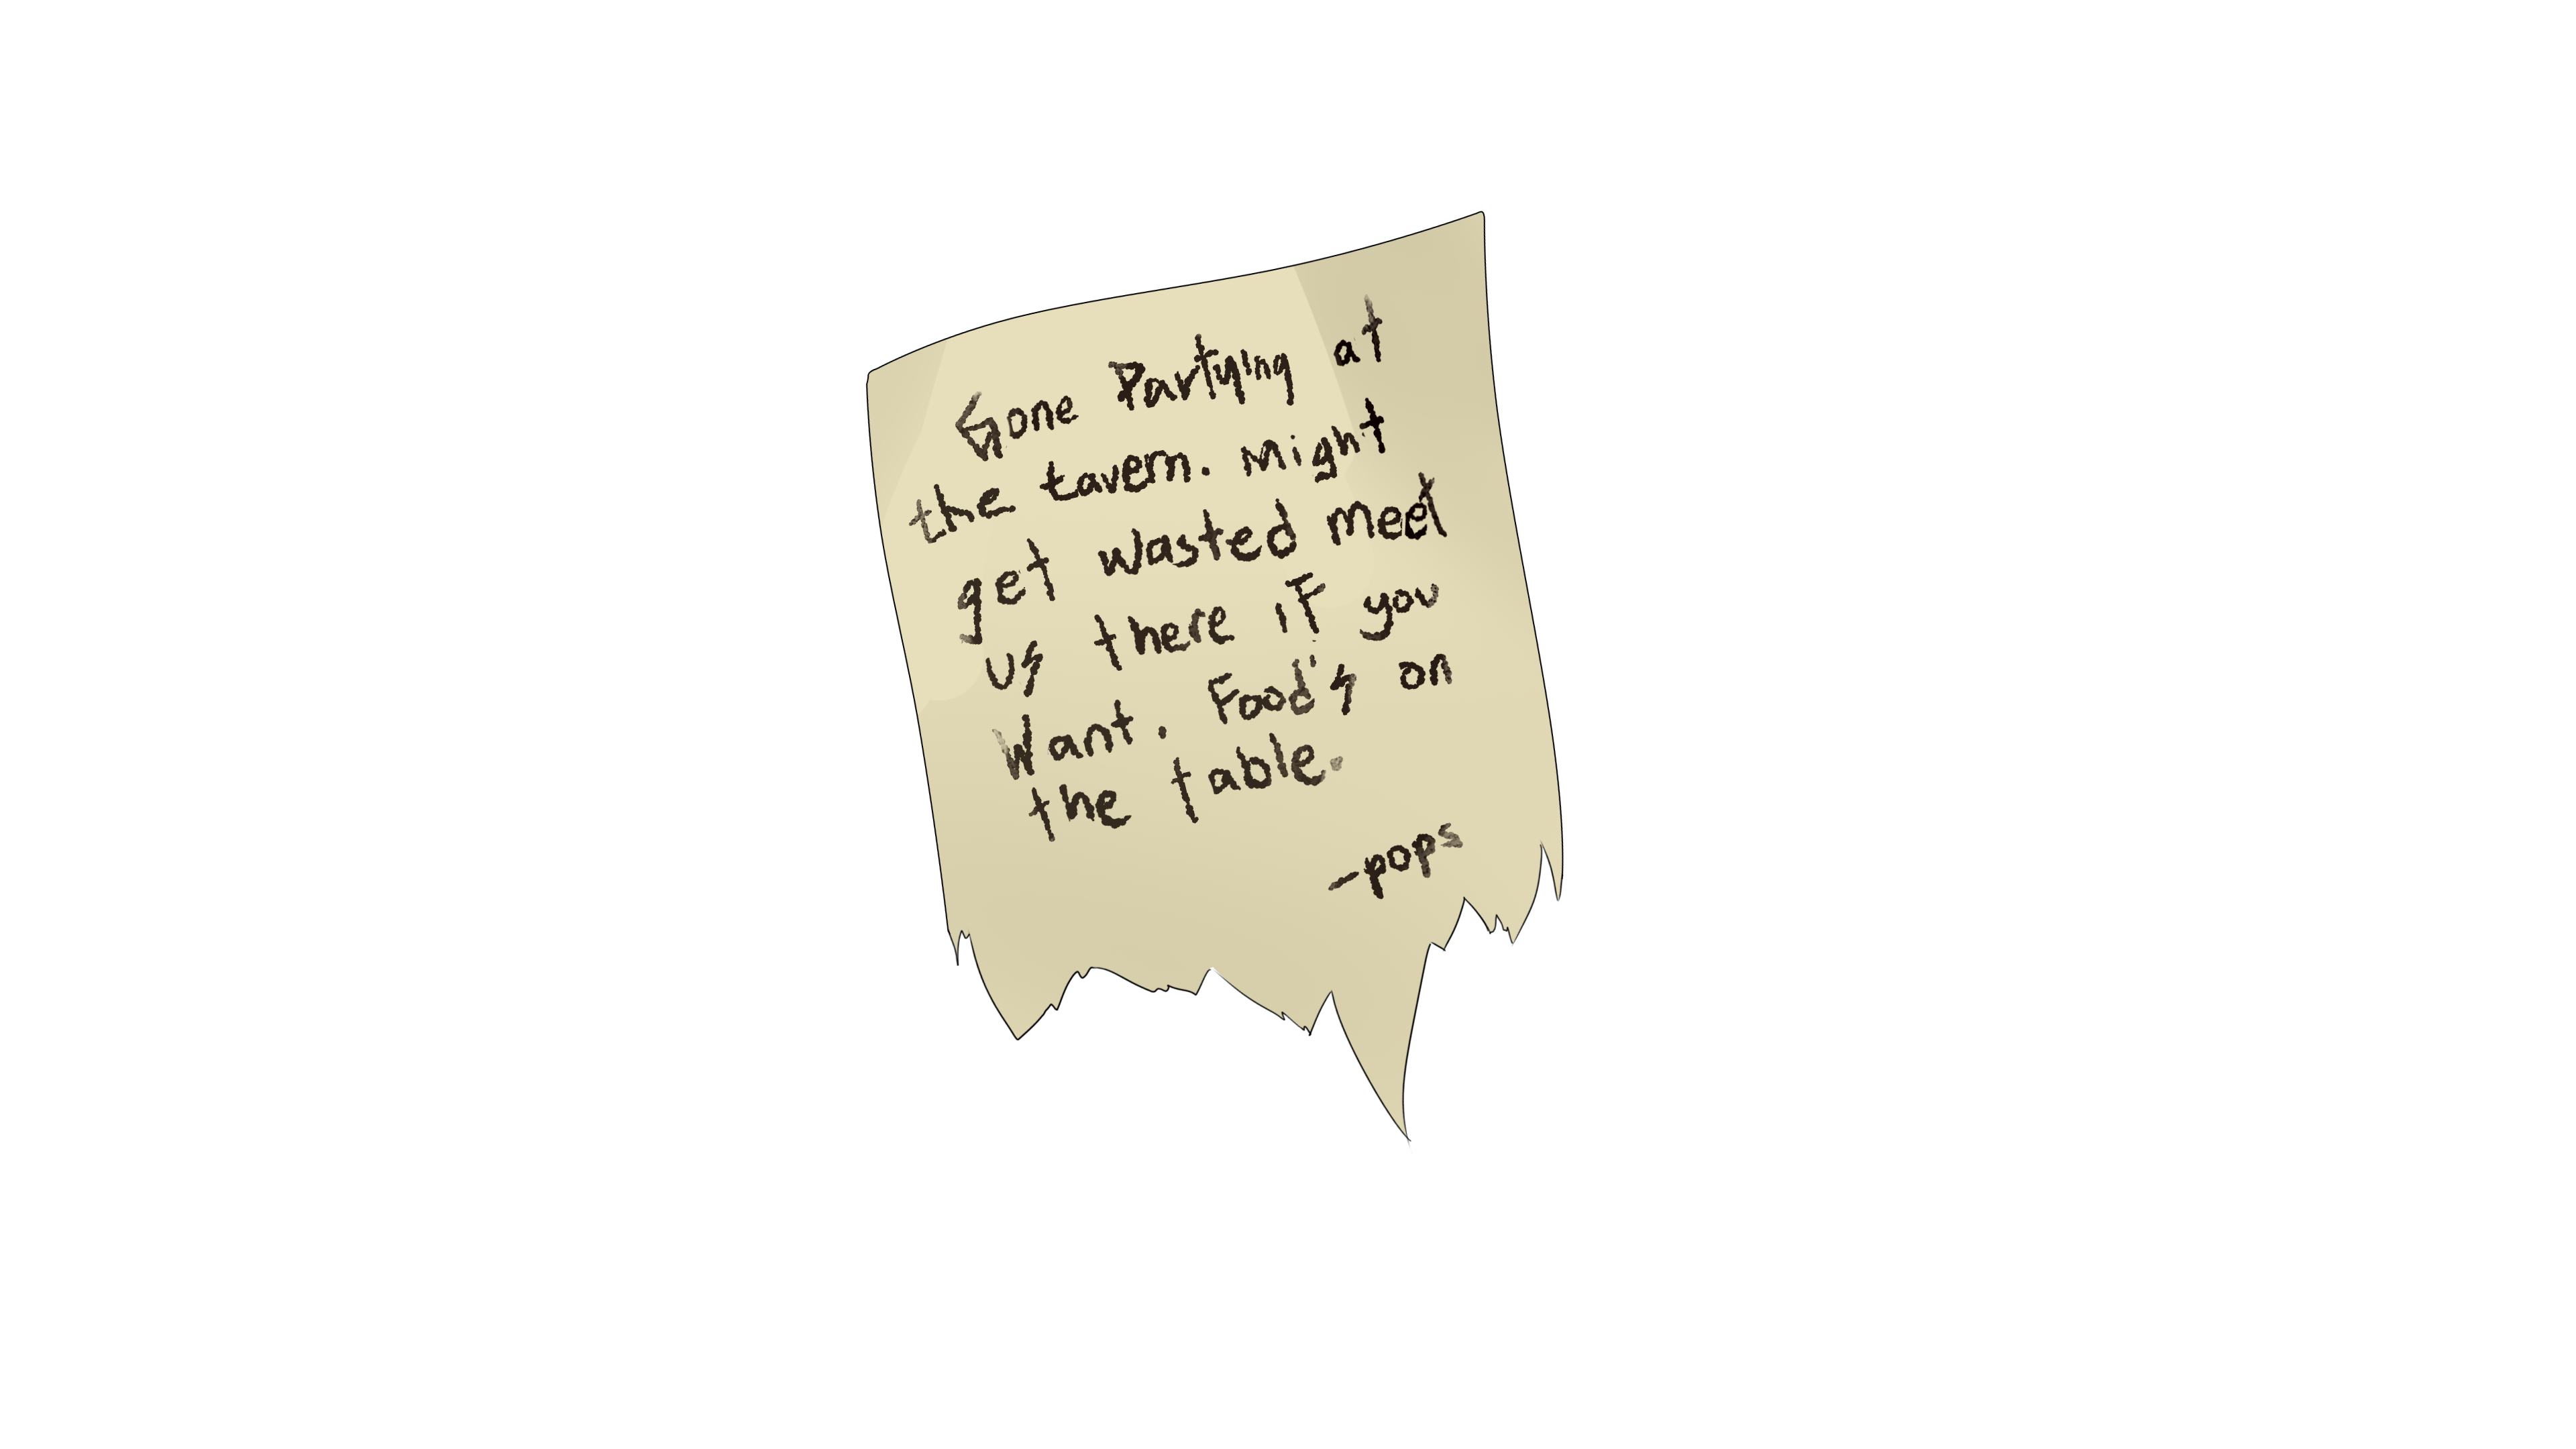 Gone Partying at
the tavern. Might
get wasted meet
us there if you
Want. Food's on
the table.
-pops